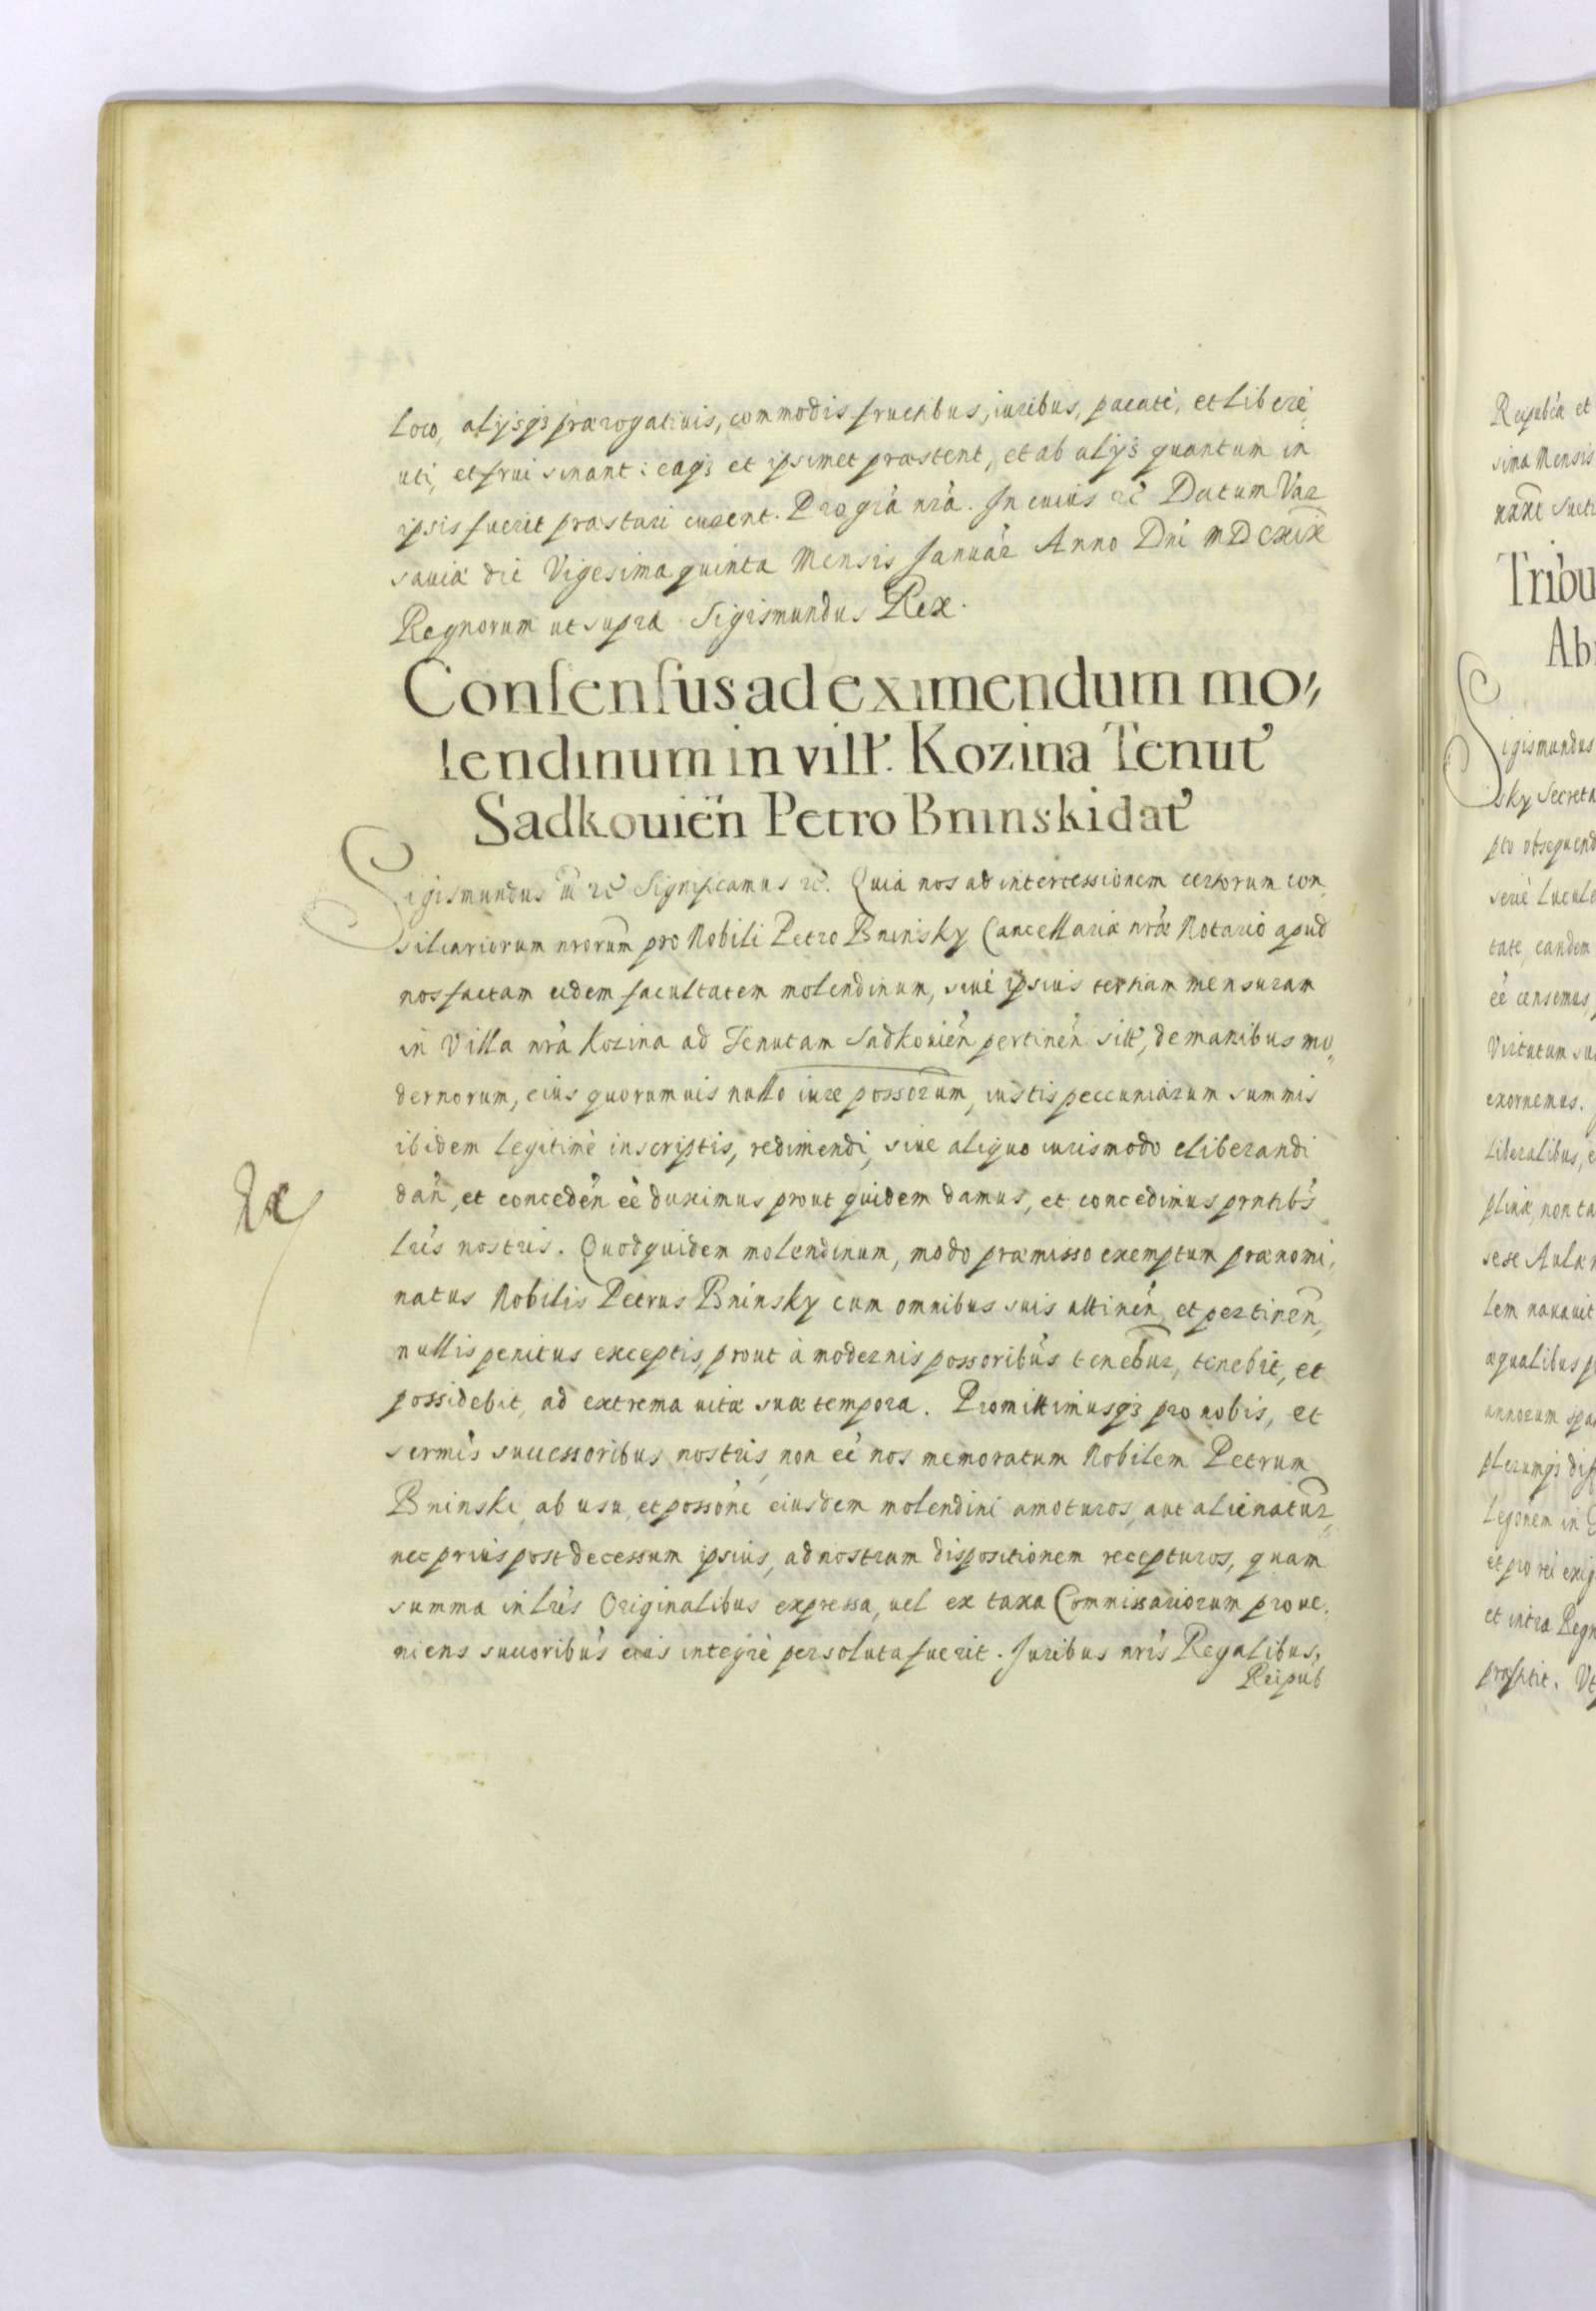 loco, alijsq3 prærogatiuis, commodis fructibus, iuribus, pacatè, et liberè
uti, et frui sinant: eaq3 et ipsimet præstent, et ab alijs quantum in
ipsis fuerit præstari curent. Pro gr̃a nr̃a. In cuius rẽ Datum Var
sauiæ die Vigesima quinta Mensis Januãr Anno Dñi MDCXIX
Regnorum ut supra Sigismundus Rex.
Consensus ad eximendum mo,,
lendinum in vill. Kozina Tenut
Sadkouieñ Petro Bninski dat
Sigismundus iii rc̃ Significamus rc̃. Quia nos ad intercessionem certorum con,
siliariorum nrorum pro Nobili Petro Bninsky Cancellariæ nræ Notario apud
nos factam eidem facultatem molendinum, siue ipsius tertiam mensuram
in Villa nrã Kozina ad Tenutam Sadkouieñ pertineñ sitt, de manibus mo,,
dernorum, eius quorumuis nullo iure possorum, iustis peccuniarum summis
ibidem legitimè inscriptis, redimendi, siue aliquo iurismodo eliberandi
dañ, et concedeñ ẽe duximus prout quidem damus, et concedimus prntibs
lris nostris. Quodquidem molendinum, modo præmisso exemptum prænomi,
natus Nobilis Petrus Bninsky cum omnibus suis attineñ, et pertineñ,
nullis penitus exceptis, prout à modernis possoribus tenebur, tenebit, et
possidebit, ad extrema uitæ suæ tempora. Promittimusq3 pro nobis, et
sermis successoribus nostris, non ẽe nos memoratum Nobilem Petrum
Bninski, ab usu, et possone eiusdem molendini amoturos, aut alienatur,
nec prius post decessum ipsius, ad nostram dispositionem recepturos, quam
summa in lris Originalibus expressa, uel ex taxa Commissariorum proue,
niens succoribus eius integrè persoluta fuerit. Juribus nris Regalibus,
Reipub
Reipubcæ et
sima Mensis
Tribu
Ab
Sigismundus
sky Secreta
pto obsequend
tate, eandem
ẽe censemus,
Virtutum su
exornemus.
liberalibus, e
plinæ, non ta
sese Aulæ n
lem nauauit
æqualibus p
annorum spa
plerumq3 dif
legonem in
et pro rei exig
et intra Regn
præstitit. Vt